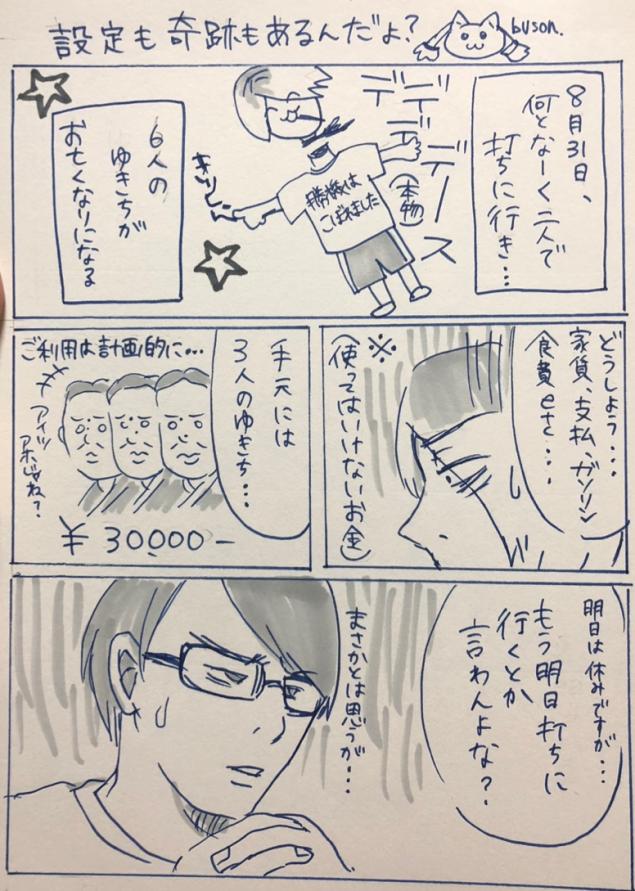 設定も奇跡もあるんだよ?
buson.
8月31日、
何となーく二人で
打ちに行き…
デデデデース
(本物)
勝機は
こぼれました
6人の
ゆきちが
お亡くなりになる
どうしよう…
家賃、支払、ガソリン
食費etc…
※
(使ってはいけないお金)
手元には
3人のゆきち…
ご利用は計画的に…
アイツ
アホじゃね?
¥30000-
明日は休みですが…
もう明日打ちに
行くとか
言わんよな?
まさかとは思うが…